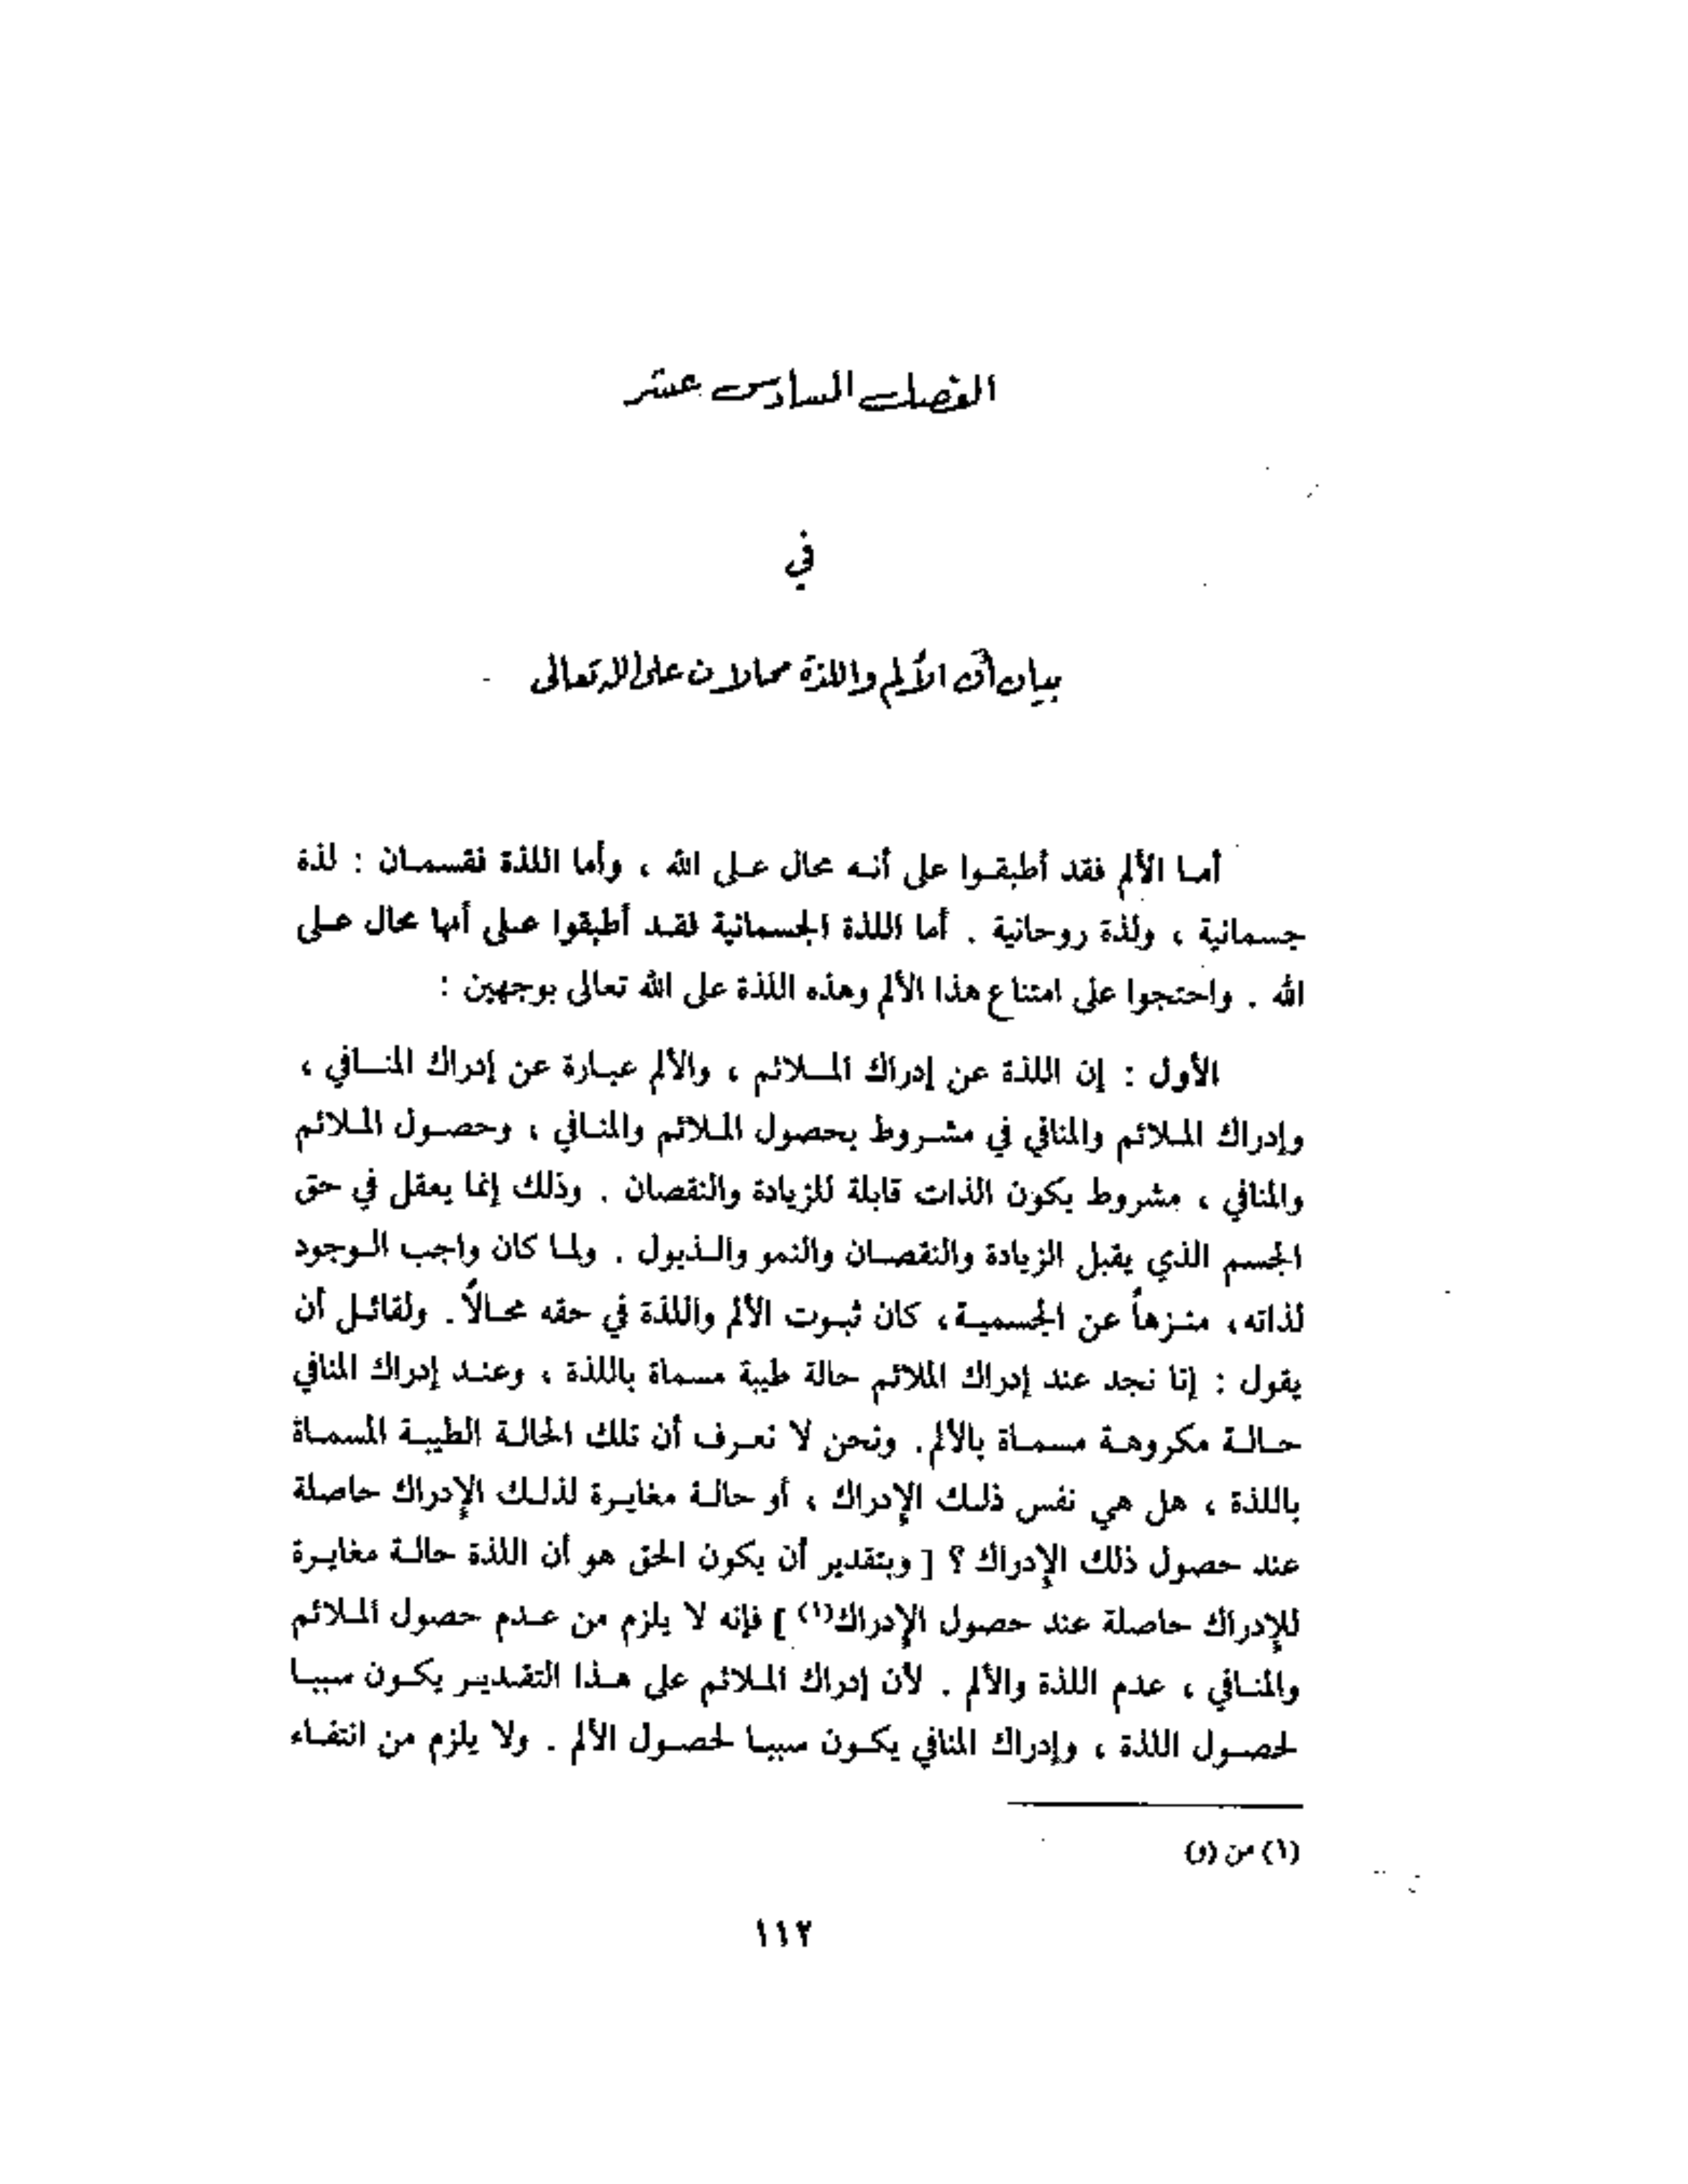 الفصل السادس عشر
في
بيان أن الألم واللذة محالان على الله تعالى
أما الألم فقد أطبقوا على أنه محال على الله ، وأما اللذة فقسمان : لذة
جسمانية ، ولذة روحانية . أما اللذة الجسمانية فقد أطبقوا على أنها محال على
الله . واحتجوا على امتناع هذا الألم وهذه اللذة على الله تعالى بوجهين :
الأول : إن اللذة عن إدراك الملائم ، والألم عبارة عن إدراك المنافي ،
وإدراك الملائم والمنافي في مشروط بحصول الملائم والمنافي ، وحصول الملائم
والمنافي ، مشروط بكون الذات قابلة للزيادة والنقصان . وذلك إنما يعقل في حق
الجسم الذي يقبل الزيادة والنقصان والنمو والذبول . ولما كان واجب الوجود
لذاته، منزهاً عن الجسمية، كان ثبوت الألم واللذة في حقه محالاً . ولقائل أن
يقول : إنا نجد عند إدراك الملائم حالة طيبة مسماة باللذة ، وعند إدراك المنافي
حالة مكروهة مسماة بالألم . ونحن لا نعرف أن تلك الحالة الطيبة المسماة
باللذة ، هل هي نفس ذلك الإدراك ، أو حالة مغايرة لذلك الإدراك حاصلة
عند حصول ذلك الإدراك ؟ [ وبتقدير أن يكون الحق هو أن اللذة حالة مغايرة
للإدراك حاصلة عند حصول الإدراك(١) ] فإنه لا يلزم من عدم حصول الملائم
والمنافي ، عدم اللذة والألم . لأن إدراك الملائم على هذا التقدير يكون سببا
لحصول اللذة ، وإدراك المنافي يكون سببا لحصول الألم . ولا يلزم من انتفاء
(١) من (و)
١١٢